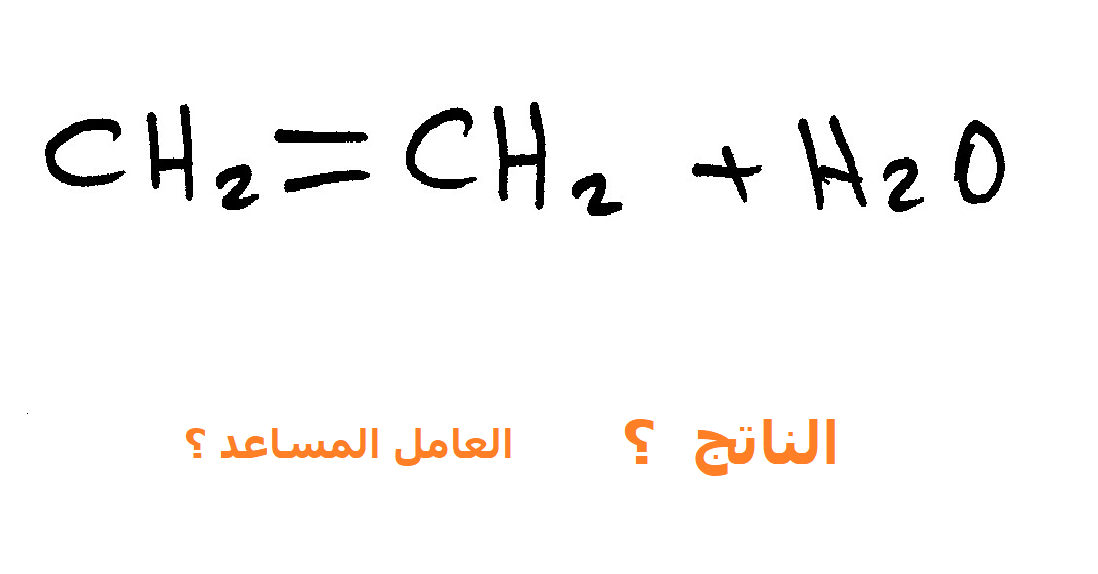 CH₂=CH₂ + H₂O
الناتج ؟ العامل المساعد ؟